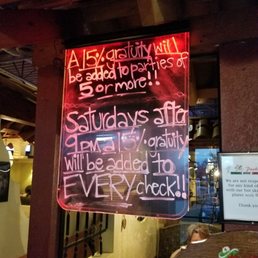 A 15% gratuity will
be added to parties of
5 or more!!
Saturdays after
9PM a 15% gratuity
will be added to
EVERY check!!
We are not resp
for any kind of